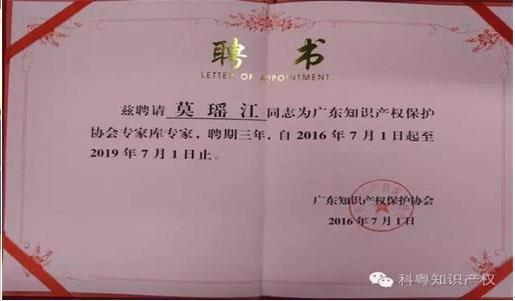 聘书
LETTER OF APPOINTMENT
兹聘请 莫瑶江 同志为广东知识产权保护
协会专家库专家，聘期三年，自2016年7月1日起至
2019年7月1日止。
广东知识产权保护协会
2016年7月1日
科粤知识产权